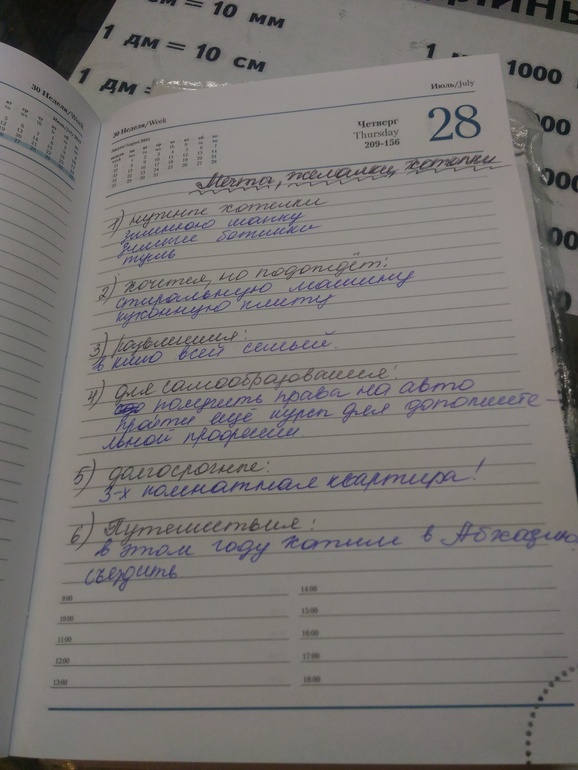 см = 10 мм
1 дм = 10 см
1 дм =
1000
30 Неделя/Week
30 Неделя/Week
Июль/July
Четверг
Thursday
209-156
28
Мечта, желалки, хотелки
1) нужные хотелки
зимнюю шапку
зимние ботинки
тумб
2) хочется, но подождёт:
стиральную машинку
кухонную плиту
3) развлечения:
в кино всей семьей.
4) для самообразования:
получить права на авто
пройти ещё курсы для дополните-
льной профессии
5) долгосрочные:
3-х комнатная квартира!
6) Путешествия:
в этом году хотим в Абхазию
съездить
9:00
14:00
10:00
15:00
11:00
16:00
12:00
17:00
13:00
18:00